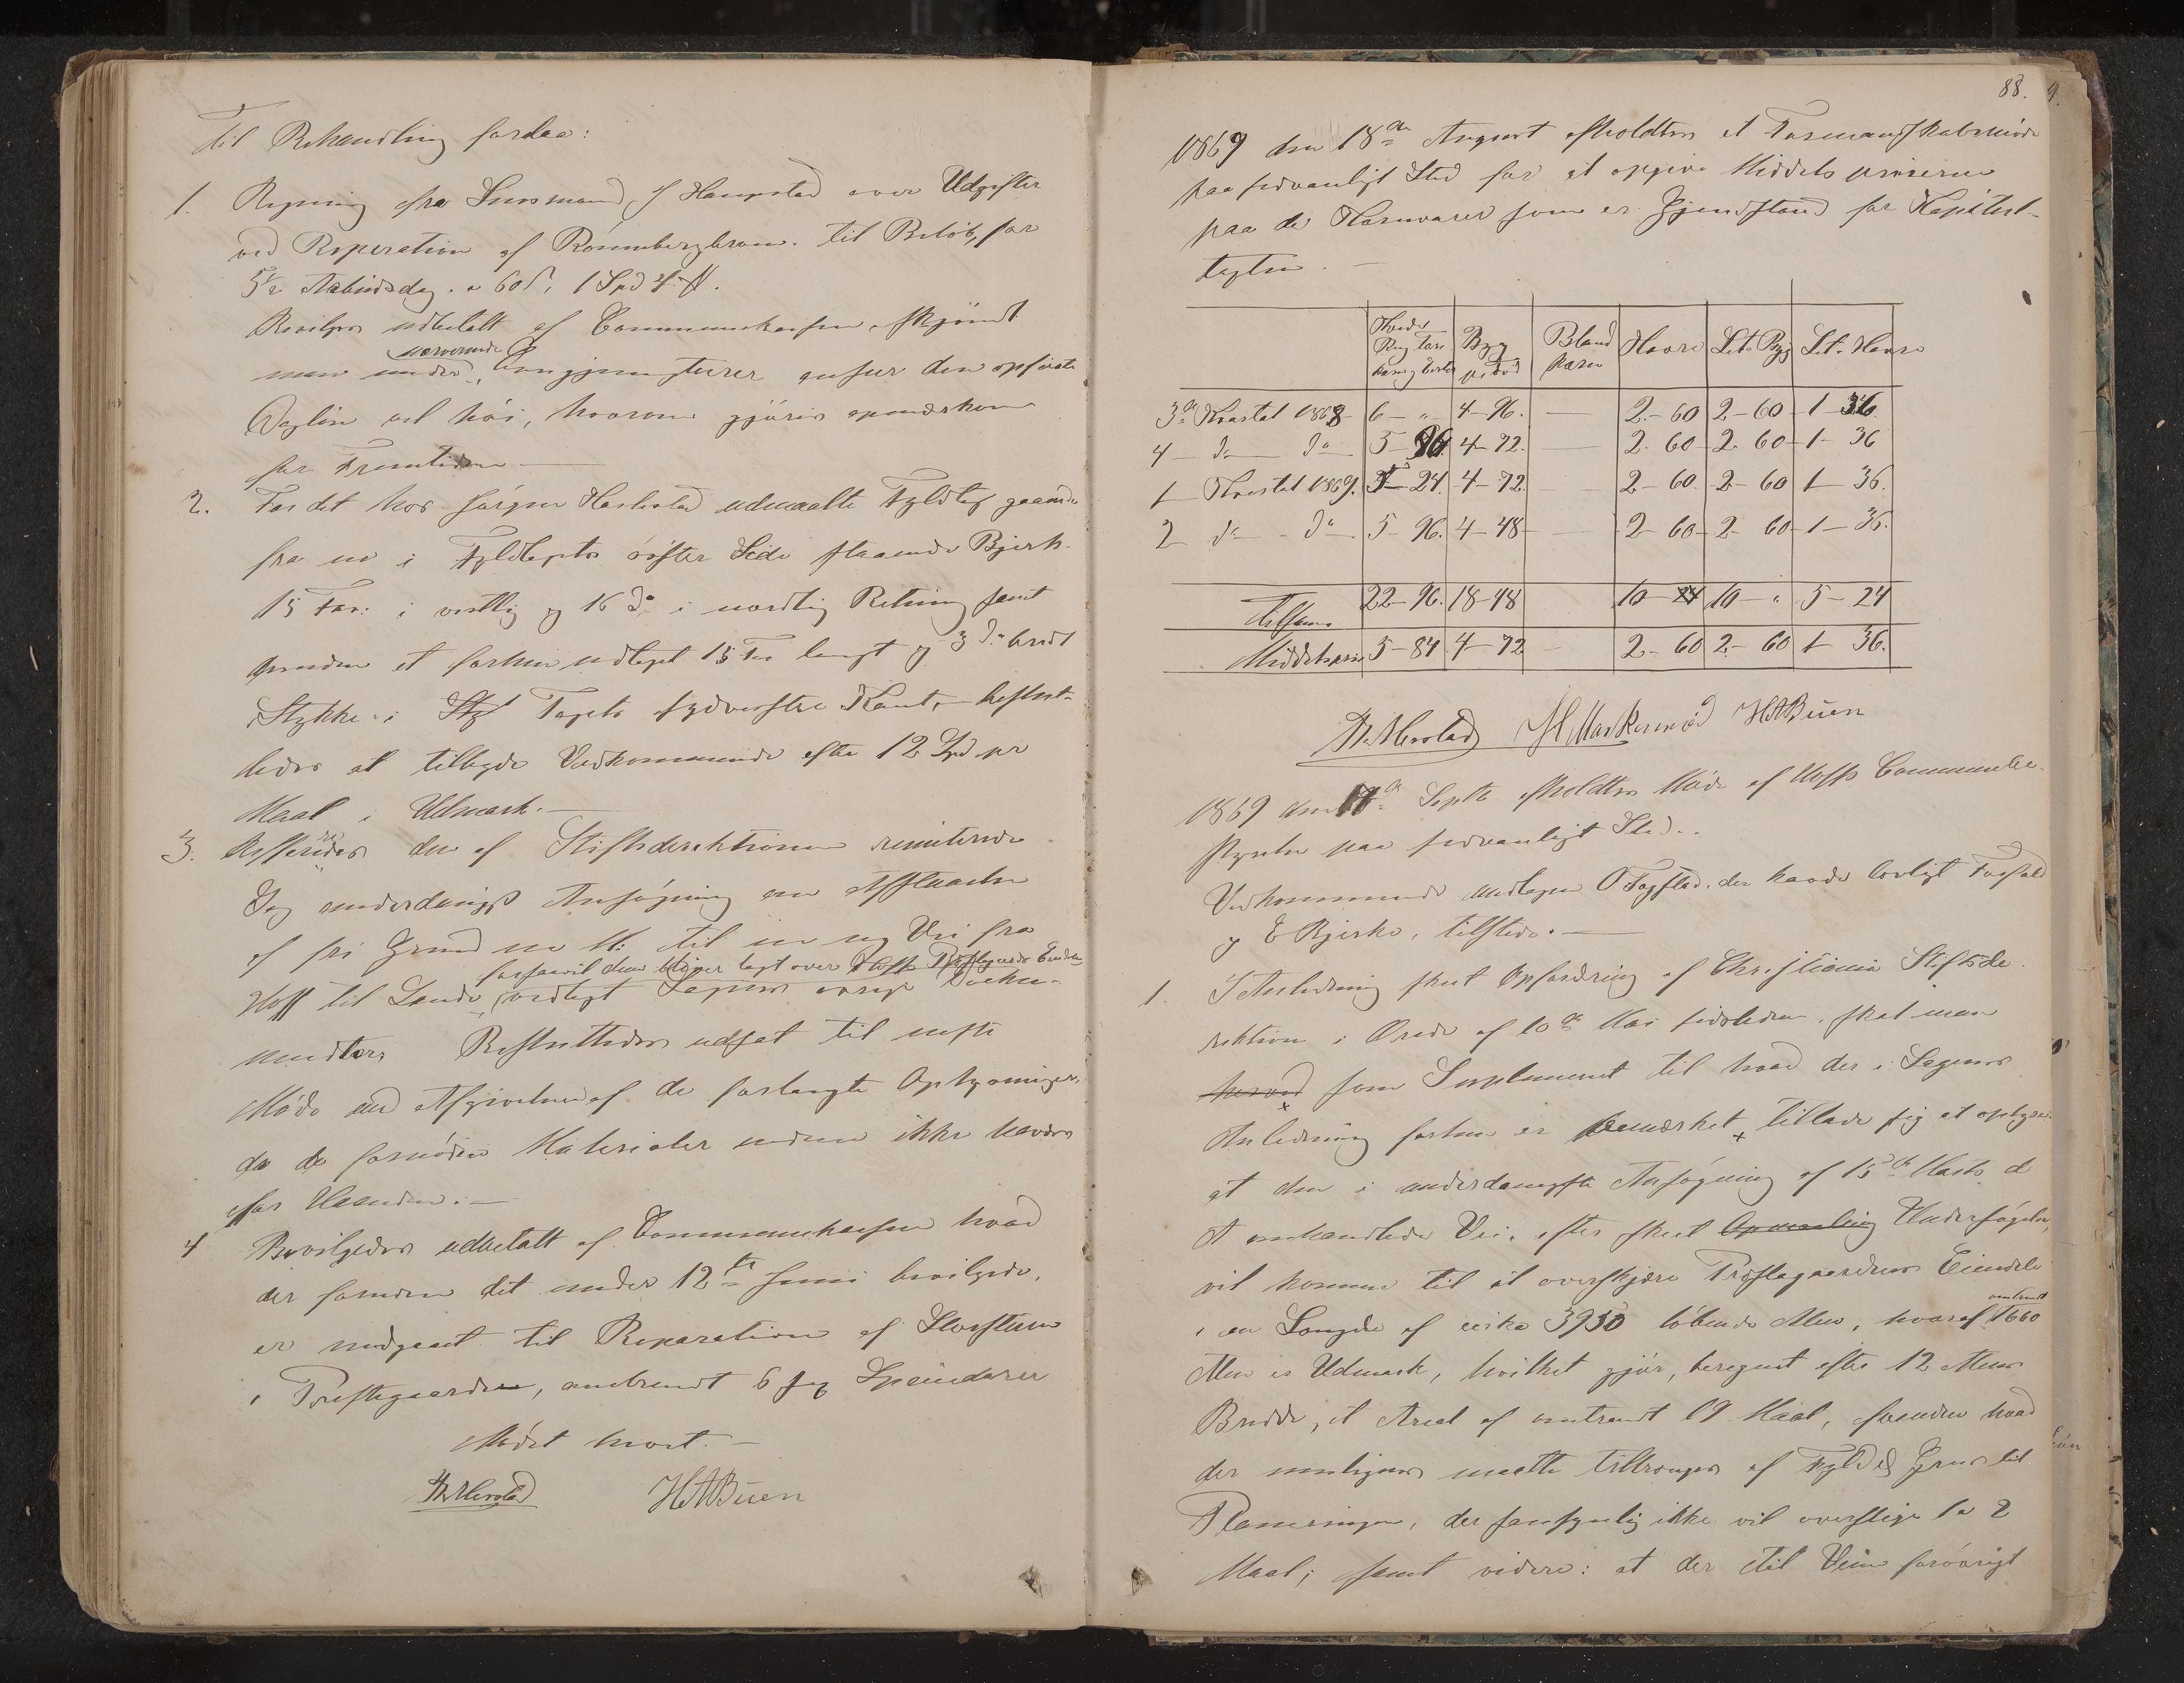 Til Behandling forelaa:
1. Regning fra Lensmand J Haugstad over Udgifter
ved Reperation af Rønnebergbroen. til Beløb, for
5½ Arbeidsdag. a 60 s, 1 Spd
Bevilges udbetalt af Communekassen, skjøndt
man under nærværende Conjuncturer anseer den opførte
Dagløn vel høi, hvorom gjøres opmærksom
for Fremtiden.
2. For det hos Jørgen udmaalte Fyldtag gaaende
fra en i Fyldtagets østre Side staaende Bjerk
15 Fav: i vestlig og 16 do i nordlig Retning samt
desuden et forhen udtaget 15 Fav langt og 3 do bredt
Stykke i Tagets sydvestre Kant, beslut-
tedes at tilbyde Vedkommende efter 12 Spd pr
Maal i Udmark.
3. Refereredes den af Stiftsdirektionen
underdanigst Ansøgning om Afstaaelse
af fri Grund m M: til en ny Vei fra
Hoff til Lande, forsaavidt denne bliver lagt over Hoffs Præstegaards Eiendom
vedlagt Sagens øvrige Docu-
menter. Besluttedes udsat til neste
Møde med Afgivelsen af de forlangte Oplysninger,
da de fornødne Materialer endnu ikke havdes
for Haanden.
4 Bevilgedes udbetalt af Communekassen hvad
der foruden det under 12te Juni bevilgede,
er medgaaet til Reparation af
i Præstegaarden, omtrendt 6 sex Speciedaler
Mødet hævet.
HABüen
88.
1869 den 18de August afholdtes et Formandskabsmøde
paa sedvanligt Sted for at opgive Middelspriserne
paa de Kornvarer som er Gjenstand for Kapitels-
taxten.
Hvede Rug Byg Bland korn Havre Let. Byg Let. Havre
3de Kvartal 1868 6 - " 4-96. 2.-60 2-60 1-36
4 do do 5-96 4-72. 2.60 2.60 1-36
1 Kvartal 1869. 5-24. 4-72 2-60. 2-60 1-36.
2 do do 5-96. 4-48 2-60 2-60 1-36.
Tilsam. 22-96. 18-48 10-24 10-" 5-24
Middelspris 5-84 4-72 2-60 2-60 1-36.
HABüen
1869 den 17de Septb afholdtes Møde af Hoffs Commumebe-
styrelse paa sedvanligt Sted.
Vedkommende undtagen O Fagstad. der havde lovligt Forfald
og E Bjerke, tilstede.
1. I Anledning skeet Opfordring af Christiania Stiftsdi-
rektion i Brev af 10de Mai sidstleden, skal man
herved som Suplement til hvad der i Sagens
Anledning forhen er bemærket x tillade sig at oplyse
at den i underdanigste Ansøgning af 15de Marts d
A omhandlede Vei, efter skeet Opmaaling Undersøgelse,
vil komme til at overskjære Præstegaardens Eiendele
i en Længde af cirka 3930 løbende Alen, hvoraf omtrendt 1660
Alen er Udmark, hvilket gjør, beregnet efter 12 Alens
Bredde, et Areal af omtrendt 19 Maal, foruden hvad
der muligens maatte tiltrenges af Fyld og Grus til
Planeringen, der sansynlig ikke vil overstige 1 a 2
Maal; samt videre: at der til Veien forøvrigt